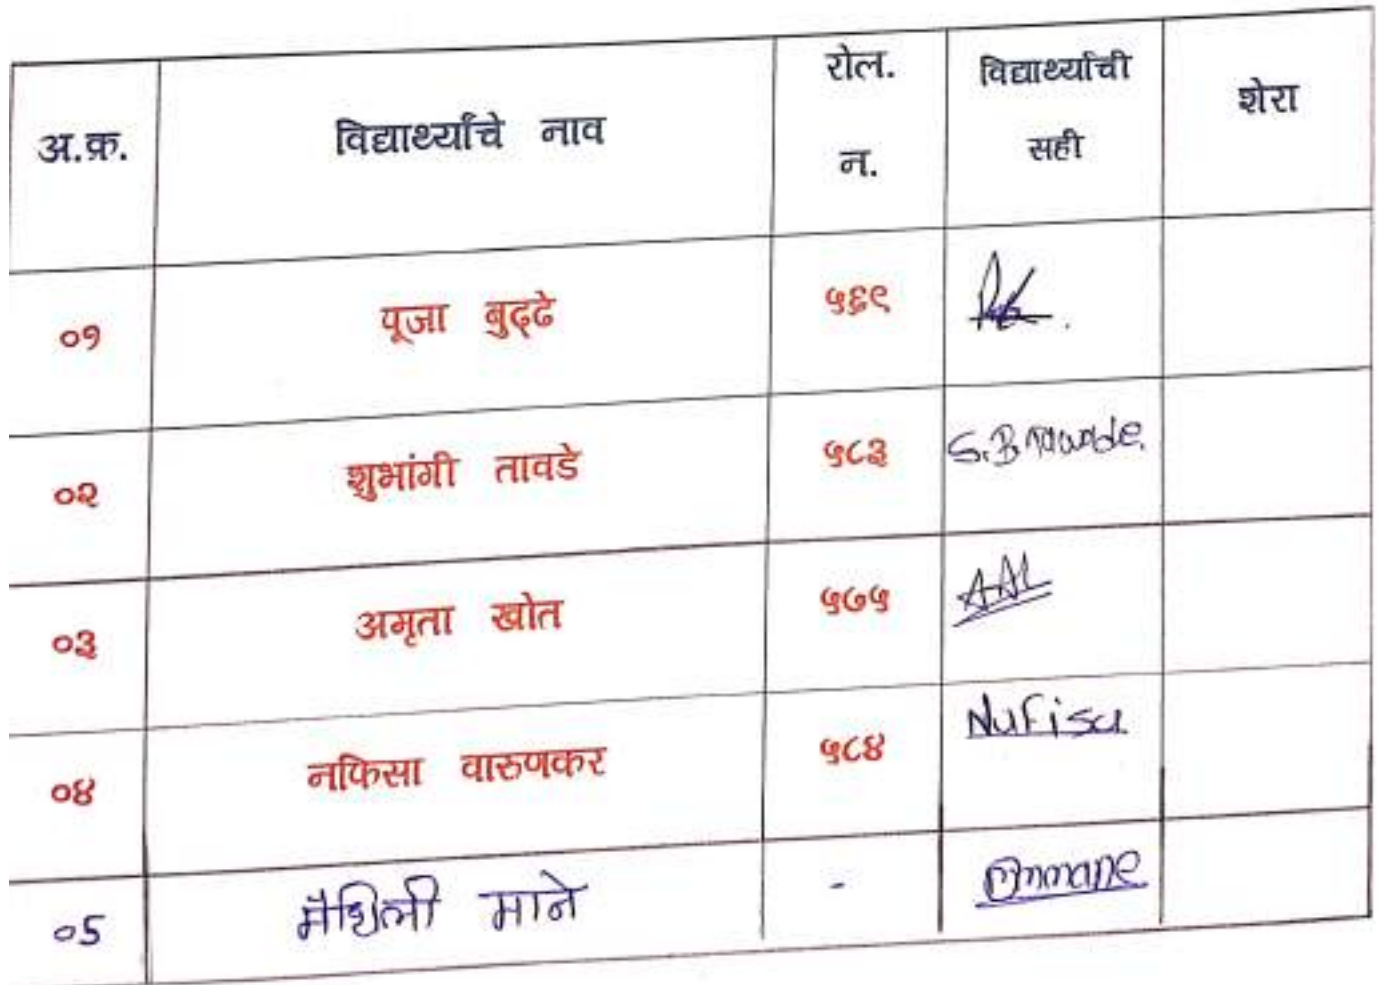 अ.क्र. विद्यार्थ्यांचे नाव रोल. न. विद्यार्थ्याची सही शेरा
०१ पूजा बुद्ढे ५६९
०२ शुभांगी तावडे ५८३ S.B.Tawade.
०३ अमृता खोत ५७५
०४ नफिसा वारुणकर ५८४ Nafisa
०5 मैथिली माने -